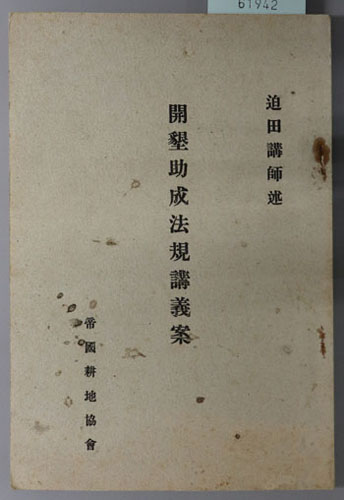 61942
迫田講師述
開墾助成法規講義案
帝國耕地協會